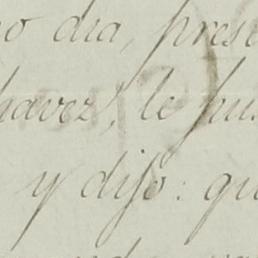 o dia, prese
havez, le hu
y dijo: qu